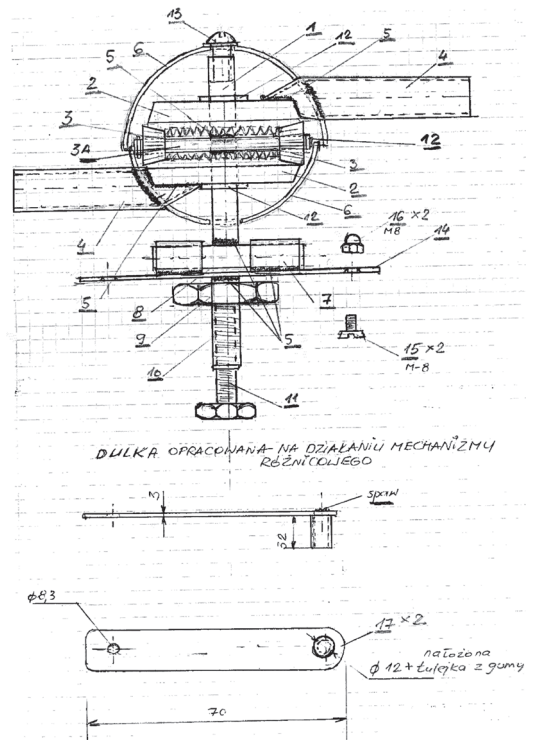 13
1
12
5
6
5
4
2
3
3A
12
3
2
6
12
4
16 x 2
M8
14
5
8
7
9
5
10
15 x 2
M-8
11
DULKA OPRACOWANA NA DZIAŁANIU MECHANIZMY
RÓŻNICOWEGO
3
spaw
32
ϕ8,3
17 x 2
nałożona
ϕ 12 + tulejka z gumy
70